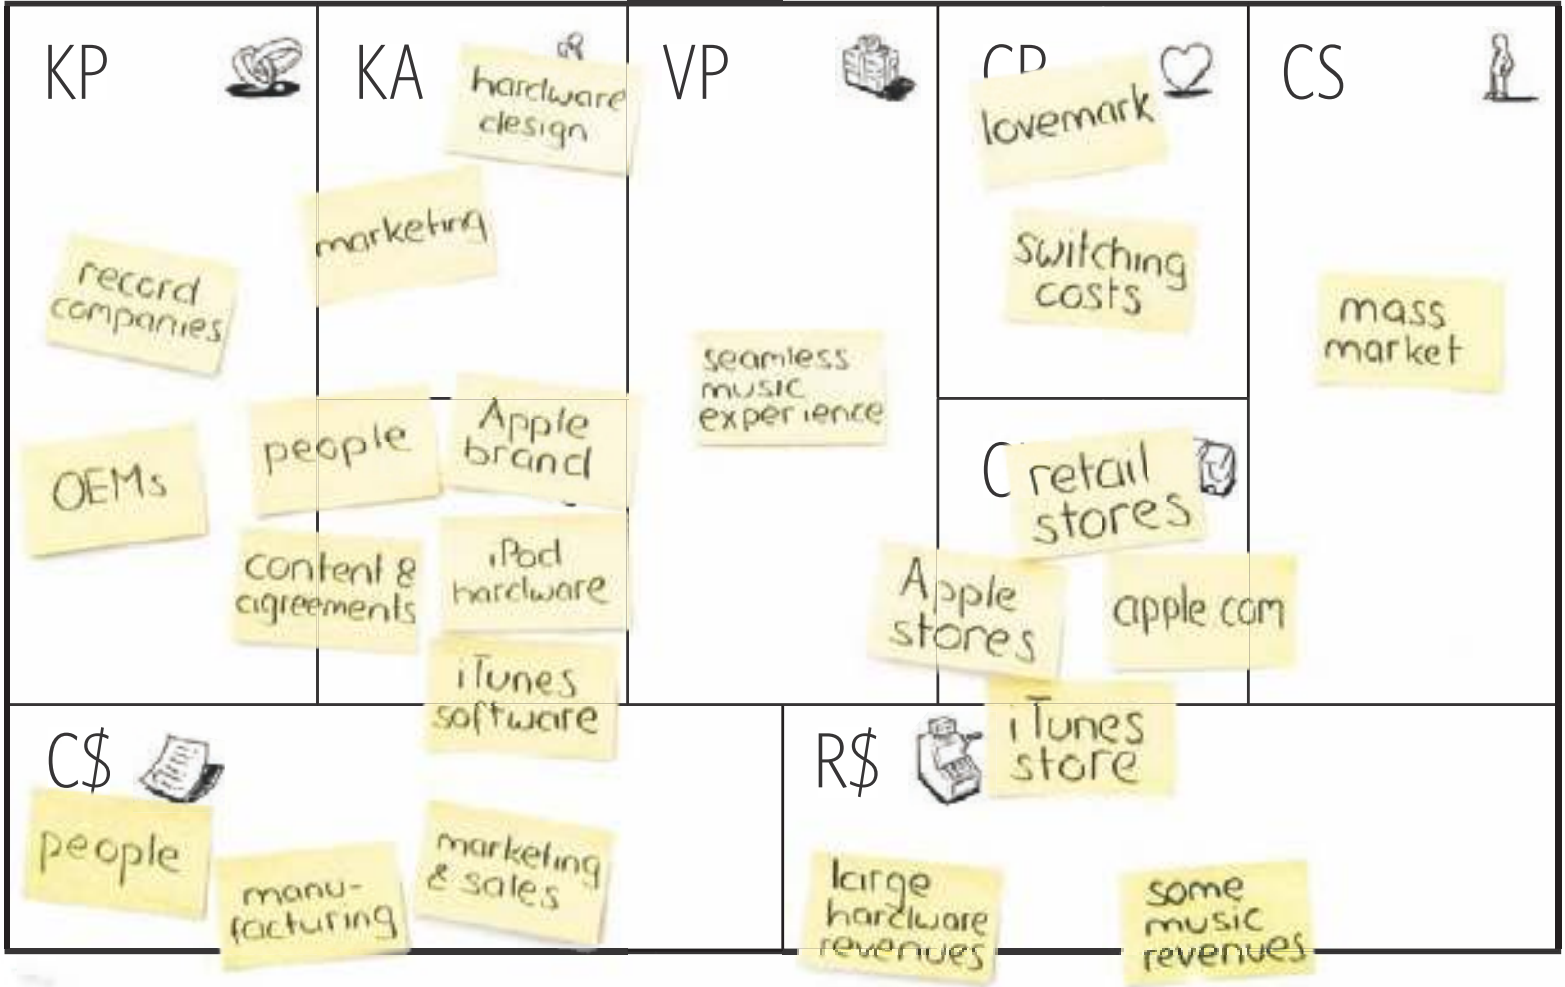 KP
record
companies
OEMs
KA
hardware
design
marketing
people
Apple
brand
content &
agreements
iPod
hardware
iTunes
software
VP
seamless
music
experience
CR
lovemark
switching
costs
C
retail
stores
Apple
stores
apple com
iTunes
store
CS
mass
market
C$
people
manu-
facturing
marketing
& sales
R$
large
hardware
revenues
some
music
revenues